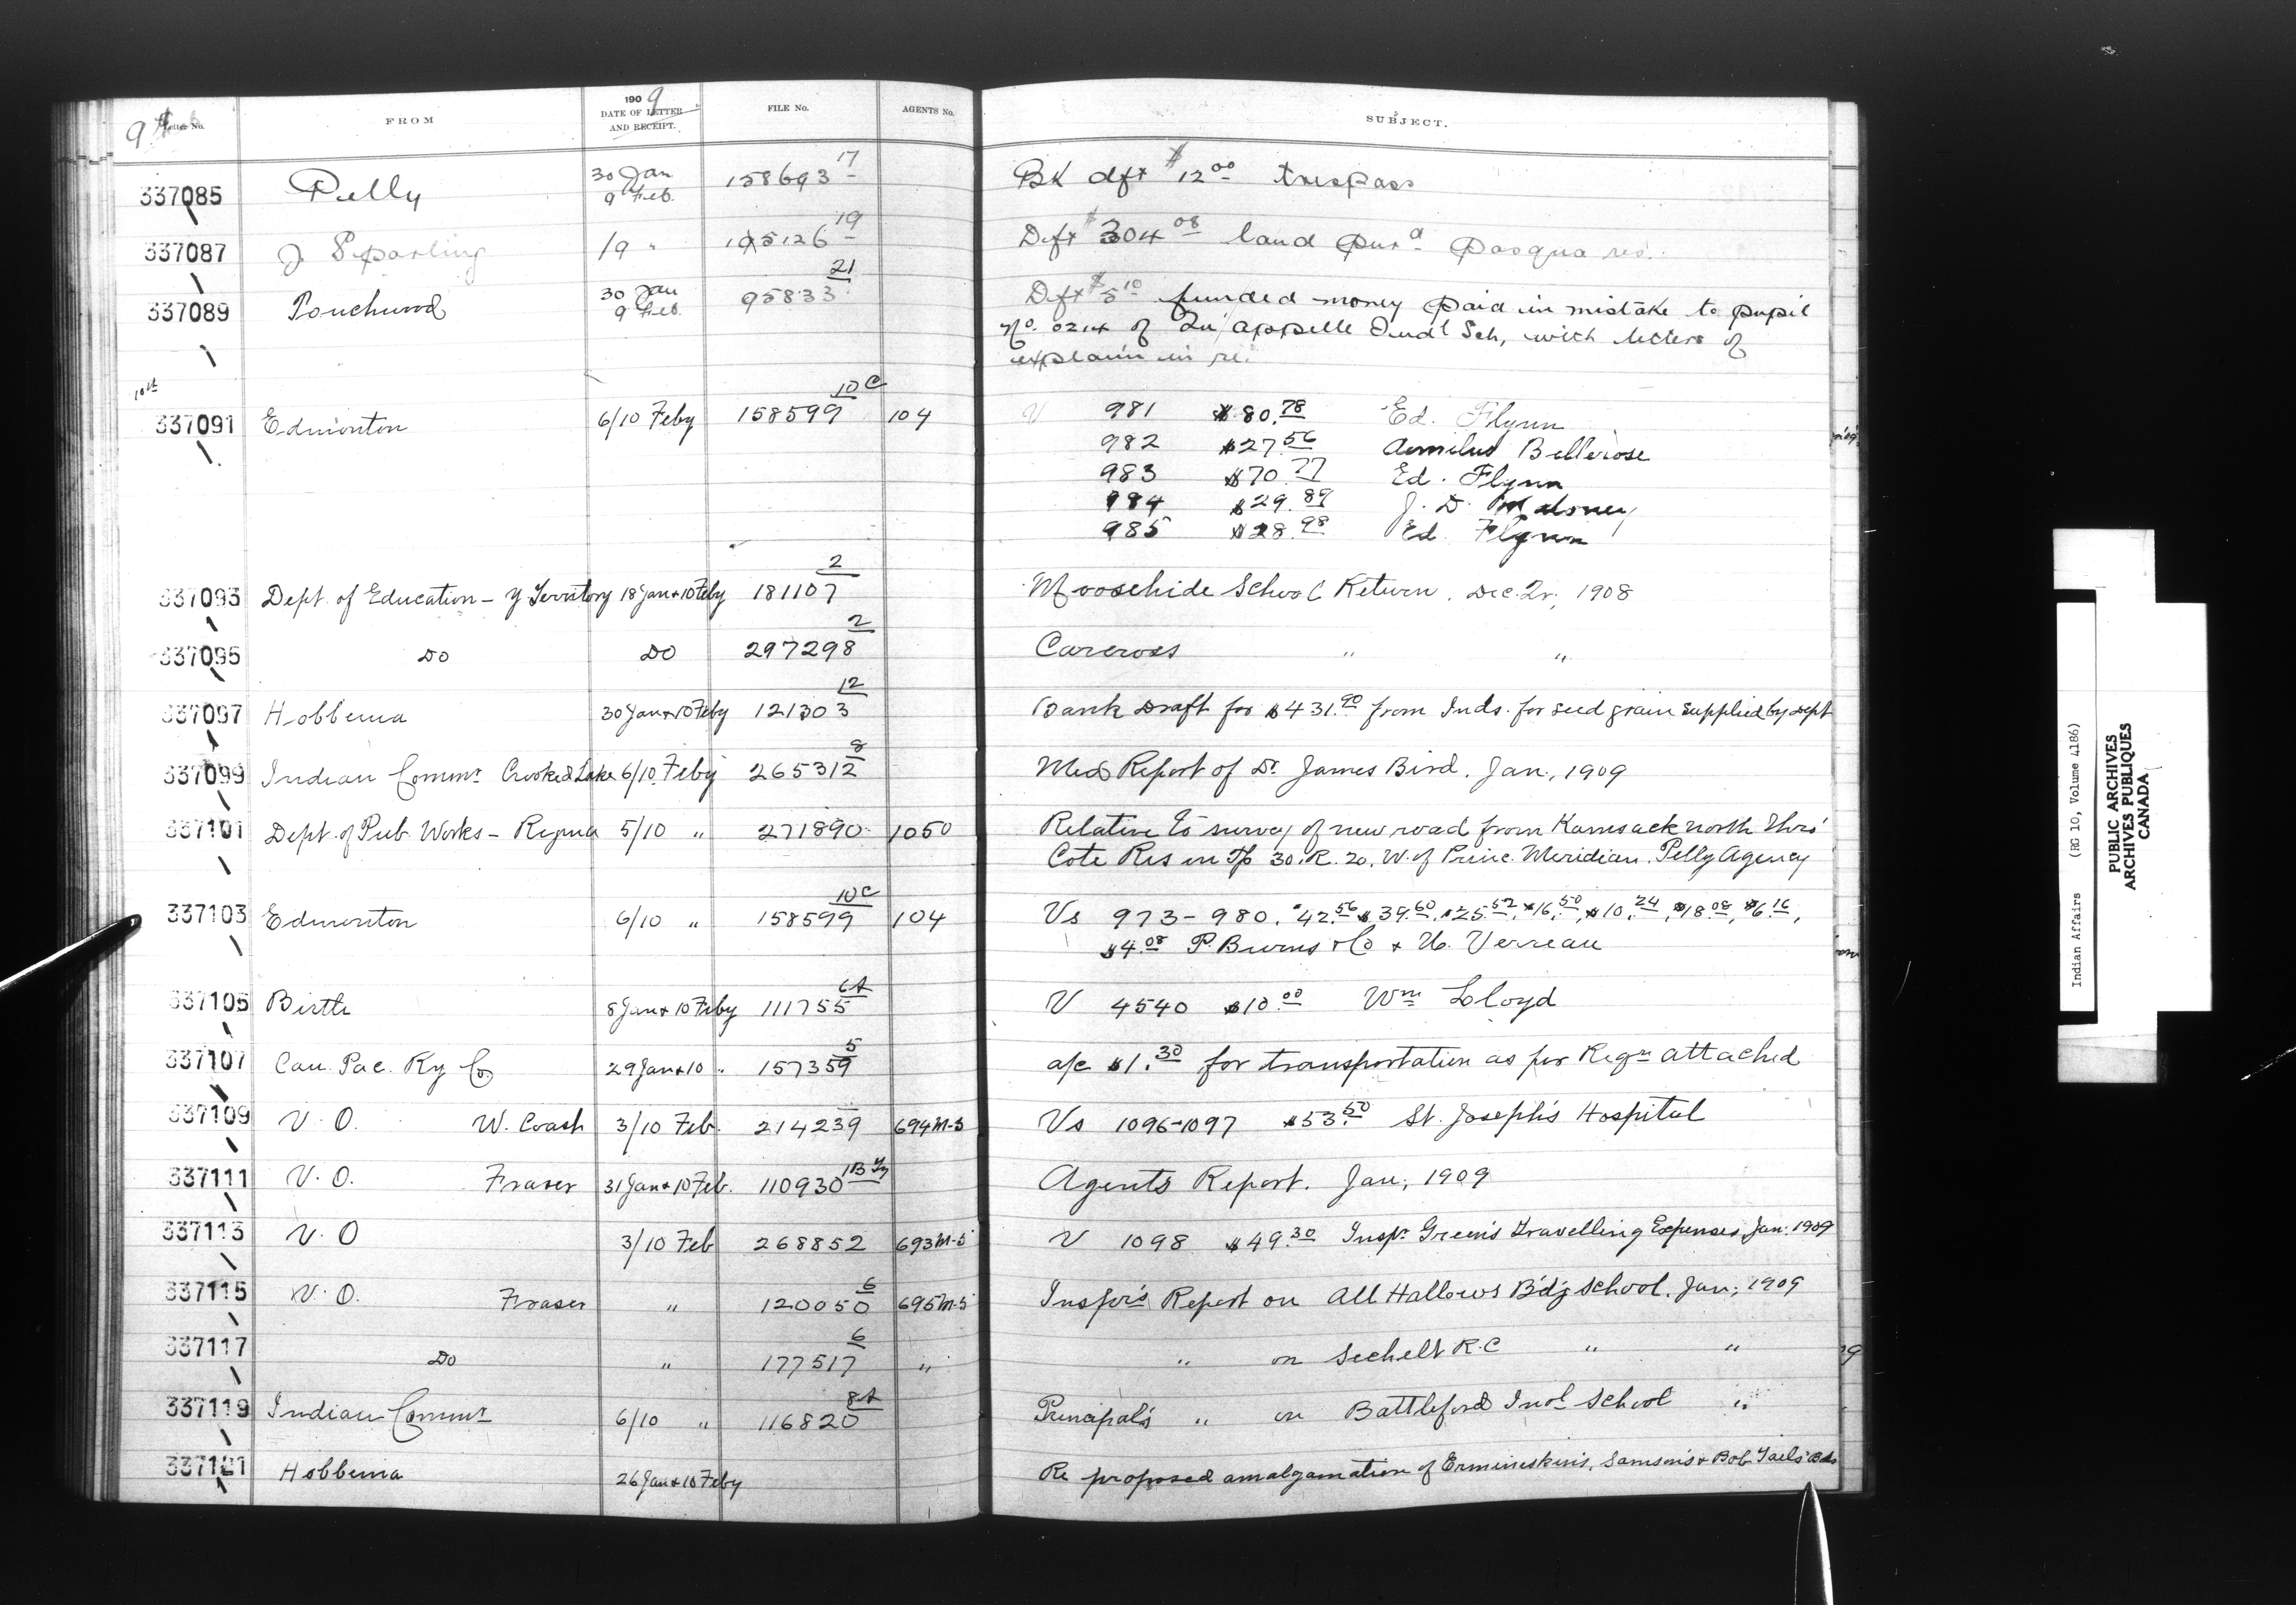 9th Feb
Letter No. FROM 1909 DATE OF LETTER AND RECEIPT. FILE No. AGENTS No. SUBJECT.
337085 Pelly 30 Jan 9 Feb. 158693 17 Bk dft $12.00 trespass
337087 J Sparling /9 " 105126 19 Dft $304.08 land purd Pasqua res.
337089 Punchwood 30 Jan 9 Feb. 95833 21 Dft $5.10 funded money paid in mistake to pupil
No. 0214 of Qu'appelle Indl Sch, with letters of
explain in re.
10th
337091 Edmonton 6/10 Feby 158599 10C 104 V 981 $80.78 Ed. Flynn
982 $27.56 Bellerose
983 $70.77 Ed. Flynn
984 $29.89 J. D. Maloney
985 $28.98 Ed. Flynn
337093 Dept. of Education - Y Territory 18 Jan & 10 Feby 181107 2 Moosehide School Return. Dec. Qr, 1908
337095 Do Do 297298 2 Carcross " "
337097 Hobbema 30 Jan & 10 Feby 121303 12 Bank Draft for $431.90 from Inds. for seed grain supplied by Dept
337099 Indian Commr Crooked Lake 6/10 Feby 265312 8 Med Report of Dr. James Bird. Jan., 1909
337101 Dept. of Pub. Works - Regina 5/10 " 271890 1050 Relative to survey of new road from Kamsack north thro'
Cote Res in Tp 30. R. 20. W. of Princ. Meridian. Pelly Agency
337103 Edmonton 6/10 " 158599 10C 104 Vs 973-980. $42.56 $39.60, $25.52, $16.50, $10.24, $18.08, $6.16,
$4.08 P. Burns & Co & U. Verreau
337105 Birtle 8 Jan & 10 Feby 111755 6A V 4540 $10.00 Wm Lloyd
337107 Can. Pac. Ry Co 29 Jan & 10 " 157359 5 a/c $1.30 for transportation as per Reqn attached
337109 V. O. W. Coast 3/10 Feb. 214239 694 M-5 Vs 1096-1097 $53.50 St. Joseph's Hospital
337111 V. O. Fraser 31 Jan & 10 Feb. 110930 1B Agents Report. Jan, 1909
337113 V. O 3/10 Feb 268852 693 M-5 V 1098 $49.30 Inspr Green's Travelling Expenses, Jan. 1909
337115 V. O. Fraser " 120050 6 695 M-5 Inspr's Report on All Hallows B'd'g School. Jan, 1909
337117 Do " 177517 6 " " on Sechelt R.C " "
337119 Indian Commr 6/10 " 116820 8A Principal's " on Battleford Indl School "
337121 Hobbema 26 Jan & 10 Feby Re proposed amalgamation of Ermineskin's, Samson's & Bob Tail's Bds
Indian Affairs (RG 10, Volume 4186)
PUBLIC ARCHIVES
ARCHIVES PUBLIQUES
CANADA